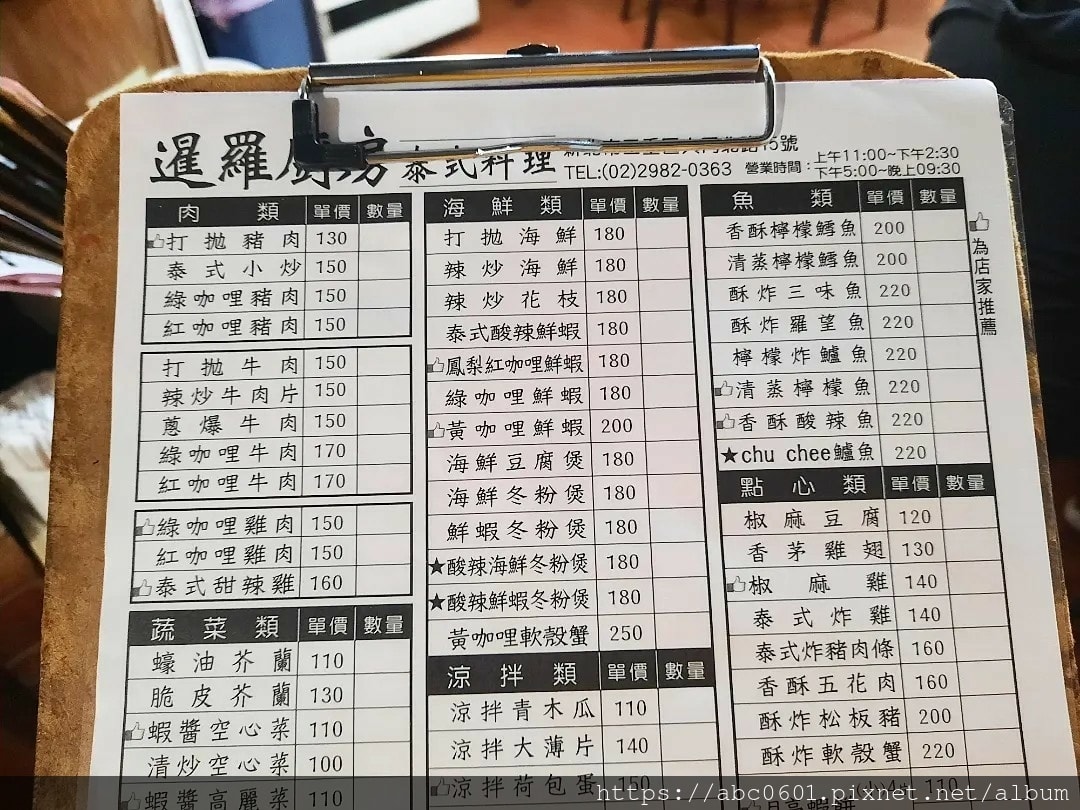 暹羅廚房 泰式料理
TEL:(02)2982-0363
15號
營業時間：上午11:00~下午2:30
下午5:00~晚上09:30
肉類 單價 數量
打拋豬肉 130
泰式小炒 150
綠咖哩豬肉 150
紅咖哩豬肉 150
打拋牛肉 150
辣炒牛肉片 150
蔥爆牛肉 150
綠咖哩牛肉 170
紅咖哩牛肉 170
綠咖哩雞肉 150
紅咖哩雞肉 150
泰式甜辣雞 160
蔬菜類 單價 數量
蠔油芥蘭 110
脆皮芥蘭 130
蝦醬空心菜 110
清炒空心菜 100
蝦醬高麗菜 110
海鮮類 單價 數量
打拋海鮮 180
辣炒海鮮 180
辣炒花枝 180
泰式酸辣鮮蝦 180
鳳梨紅咖哩鮮蝦 180
綠咖哩鮮蝦 180
黃咖哩鮮蝦 200
海鮮豆腐煲 180
海鮮冬粉煲 180
鮮蝦冬粉煲 180
★酸辣海鮮冬粉煲 180
★酸辣鮮蝦冬粉煲 180
黃咖哩軟殼蟹 250
涼拌類 單價 數量
涼拌青木瓜 110
涼拌大薄片 140
涼拌荷包蛋 150
魚類 單價 數量
香酥檸檬鱈魚 200
清蒸檸檬鱈魚 200
酥炸三味魚 220
酥炸羅望魚 220
檸檬炸鱸魚 220
清蒸檸檬魚 220
香酥酸辣魚 220
★chu chee鱸魚 220
點心類 單價 數量
椒麻豆腐 120
香茅雞翅 130
椒麻雞 140
泰式炸雞 140
泰式炸豬肉條 160
香酥五花肉 160
酥炸松板豬 200
酥炸軟殼蟹 220
110
為店家推薦
https://abc0601.pixnet.net/album